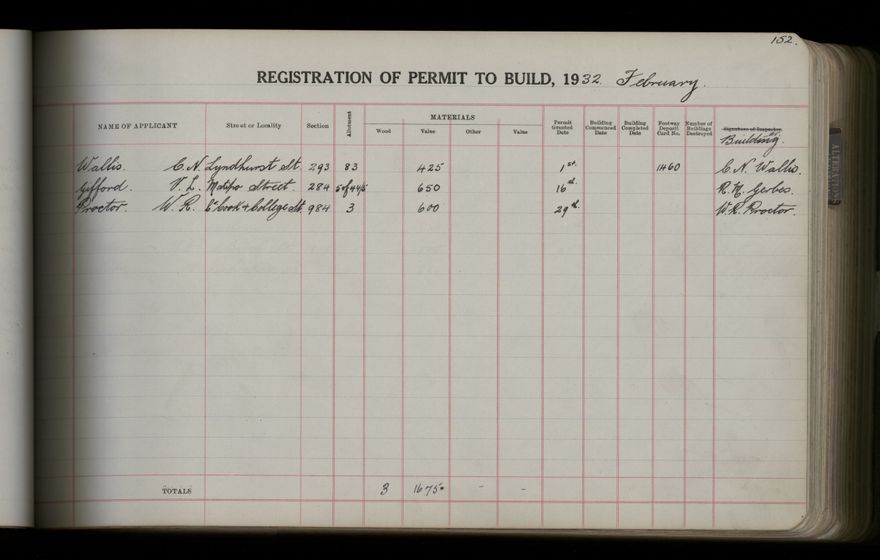 152.
REGISTRATION OF PERMIT TO BUILD, 1932 February.
NAME OF APPLICANT Street or Locality Section Allotment MATERIALS Wood Value Other Value Permit Granted Date Building Commenced Date Building Completed Date Footway Deposit Card No. Number of Buildings Destroyed Signature of Inspector Building
Wallis. C. N. Lyndhurst St. 293 83 425 1st. 1460 C. N. Wallis.
Gifford. V. L. Matipo Street. 284 650 16 R. N. Gerbes.
Proctor. W. R. Cr Cook & College St. 984 3 600 29 W. R. Proctor.
TOTALS 3 1675 - -
ALTERATIONS